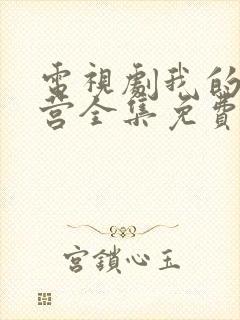 電視劇我的
营全集免費
宮鎖心玉